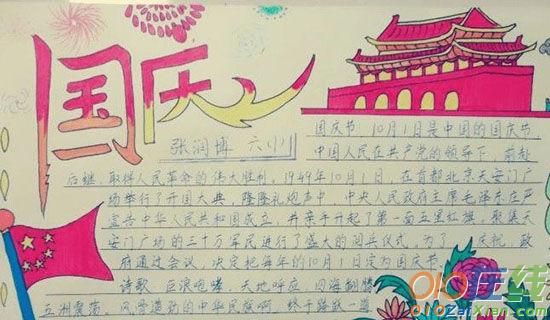 国庆
张润博 六(1)
国庆节 10月1日是中国的国庆节,
中国人民在共产党的领导下,前赴
后继,取得人民革命的伟大胜利,1949年10月1日,在首都北京天安门广
场举行了开国大典,隆隆礼炮声中,中央人民政府主席毛泽东在庄
严宣告中华人民共和国成立,并亲手升起了第一面五星红旗,聚集天
安门广场的三十万军民进行了盛大的阅兵仪式,为了 庆祝,政
府通过会议,决定把每年的10月1日定为国庆节.
诗歌:巨浪咆哮,天地呼应,四海翻腾
五洲震荡,风雷激励的中华民族啊,终于踏
在线
ZaiXian.com